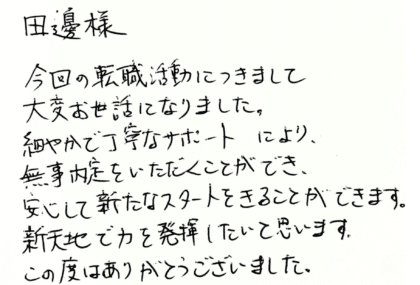 田邊様
今回の転職活動につきまして
大変お世話になりました。
細やかで丁寧なサポートにより、
無事内定をいただくことができ、
安心して新たなスタートをきることができます。
新天地で力を発揮したいと思います。
この度はありがとうございました。